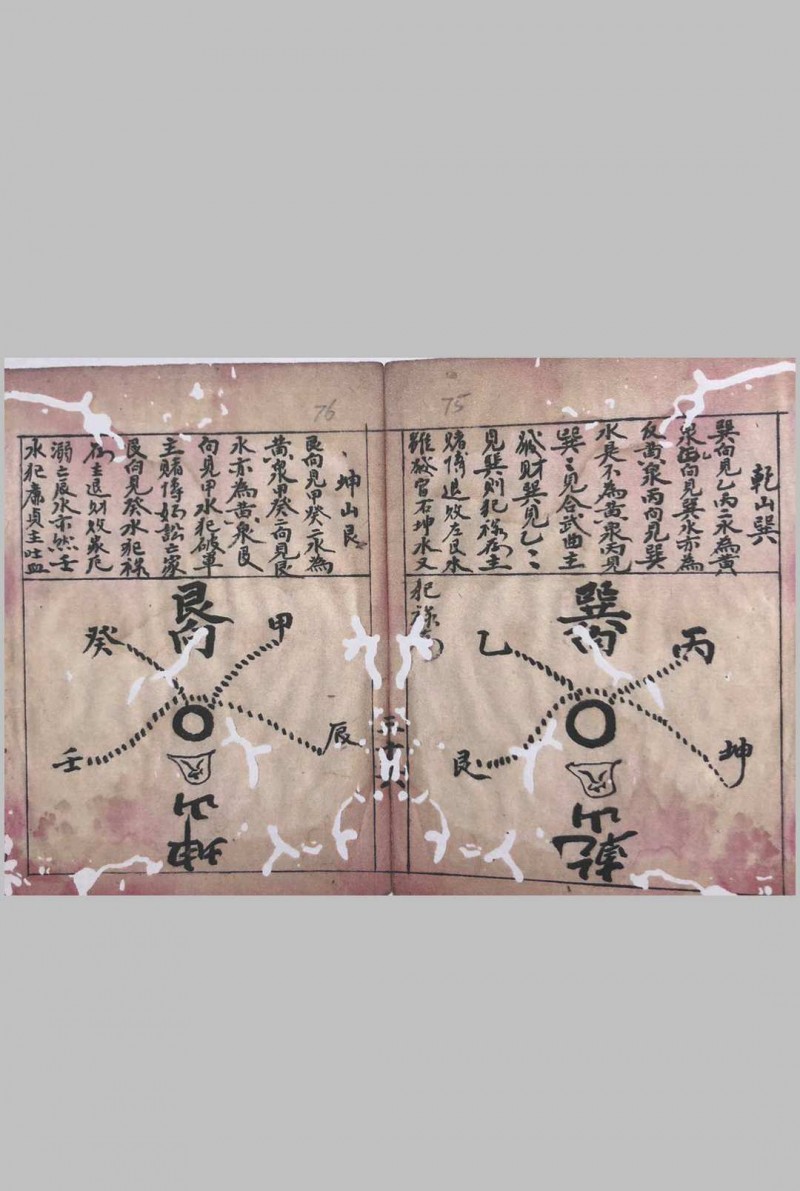 75
乾山巽
巽向見乙丙二水為黃
泉乙向見巽水亦為
反黃泉丙向見巽
水是不為黃泉丙見
巽巽見合武曲主
發財巽見乙乙
見巽則犯祿存主
賭博退敗左艮水
雖發官右坤水又
犯祿
巽向
乙
丙
艮
坤
乾山
76
坤山艮
艮向見甲癸二水為
黃泉甲癸二向見艮
水亦為黃泉艮
向見甲水犯破軍
主賭博好訟亡家
艮向見癸水犯祿
存主退財敗家厄
溺亡辰水亦然壬
水犯廉貞主吐血
艮向
癸
甲
壬
辰
坤山